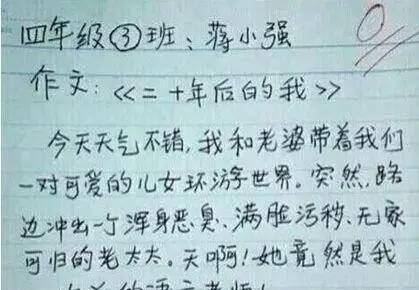 四年级③班：蒋小强
0
作文：<<二十年后的我>>
今天天气不错，我和老婆带着我们
一对可爱的儿女环游世界。突然，路
边冲出一个浑身恶臭、满脸污秽、无家
可归的老太太。天啊！她竟然是我
的语文老师！